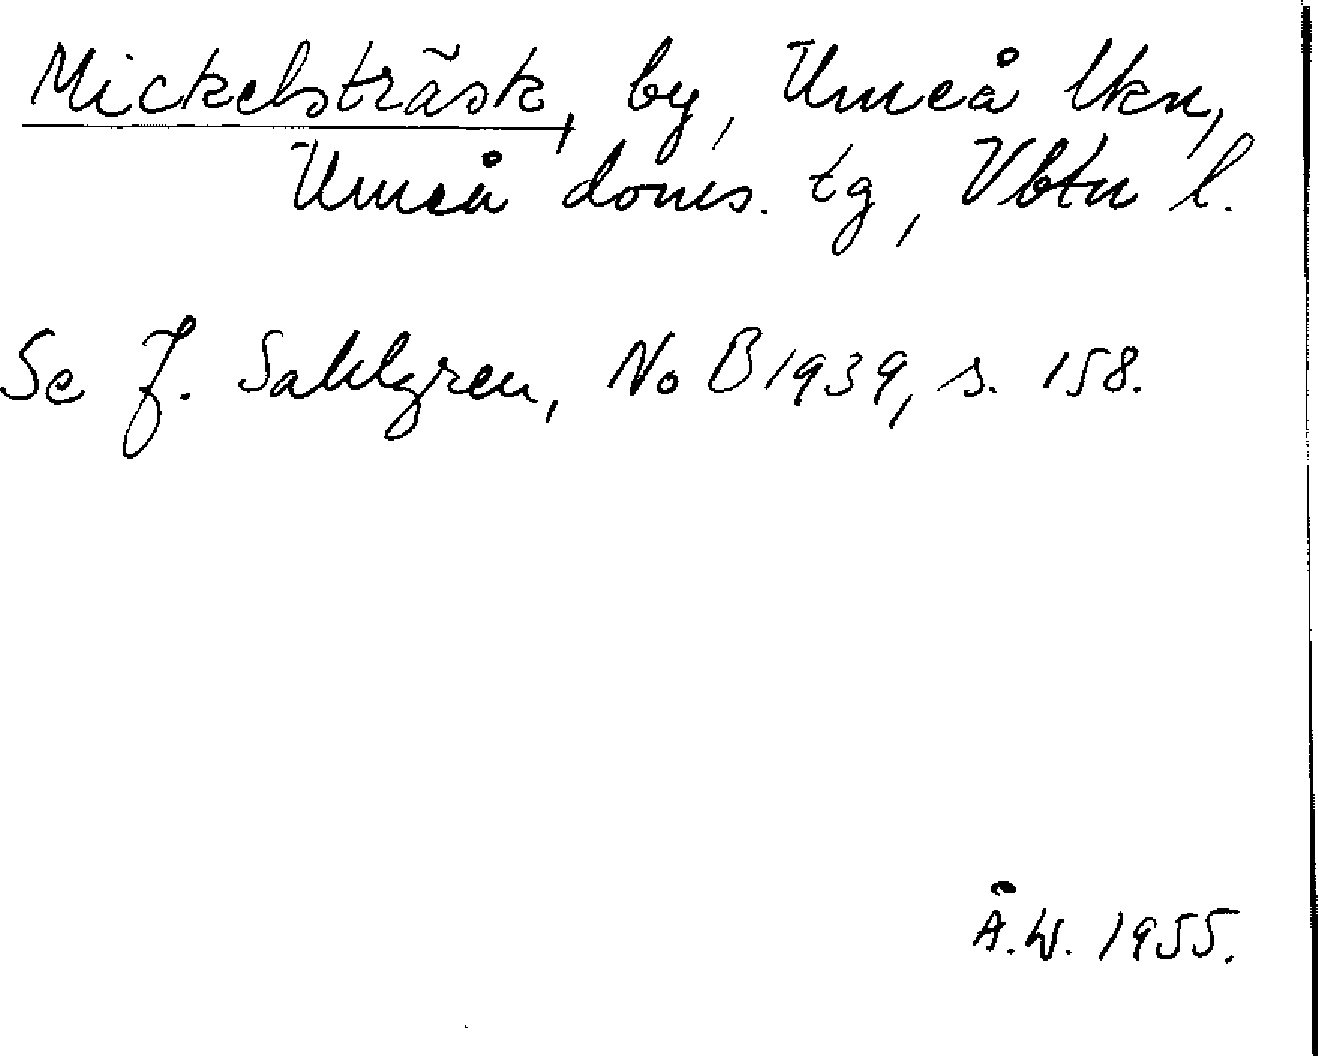 Mickelsträsk, by, Umeå lkn,
Umeå doms. tg, Vbtn l.
Se J. Sahlgren, NoB 1939, s. 158.
Å.W. 1955.